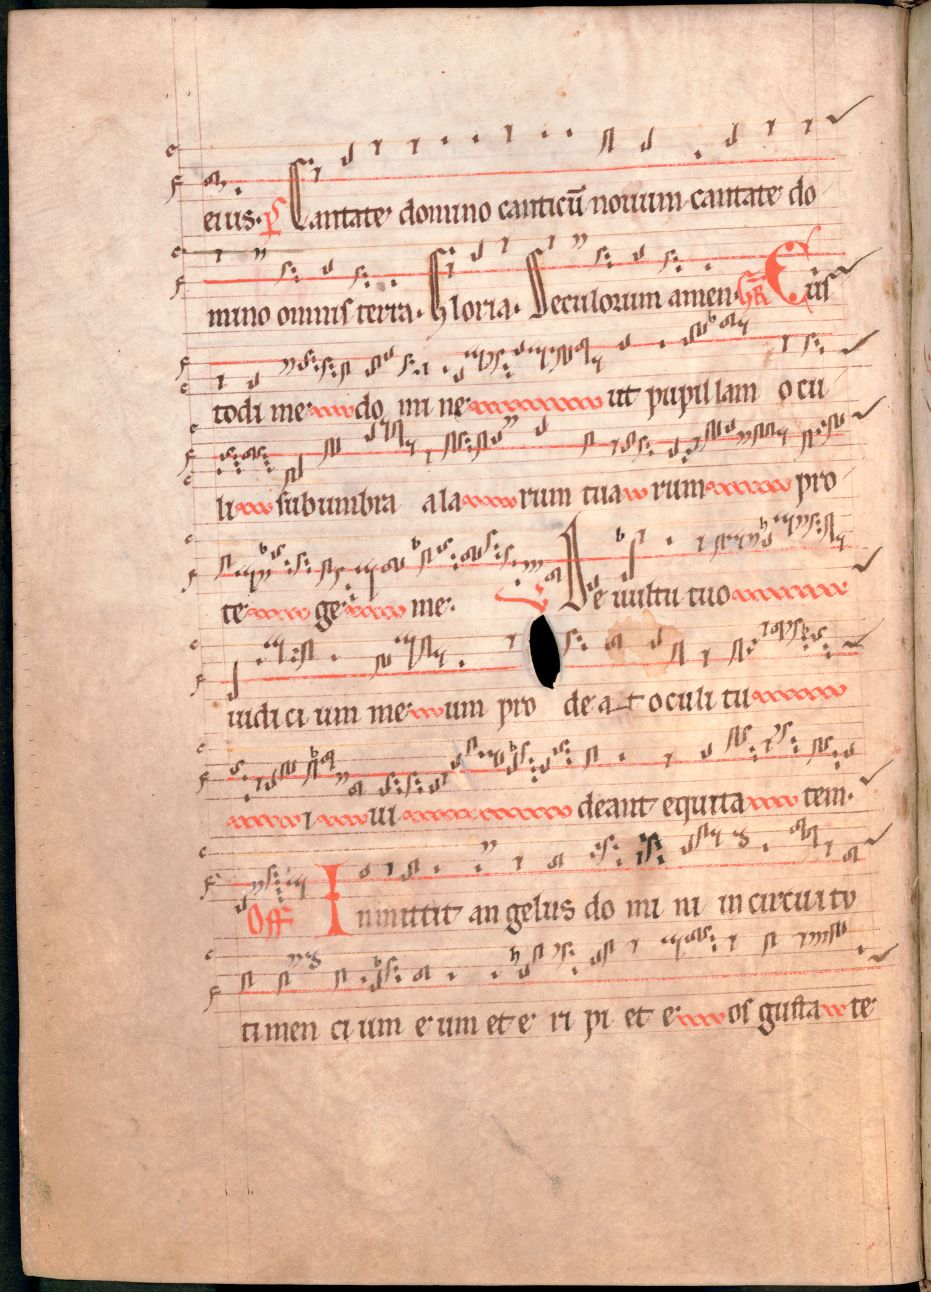 eius. Ps Cantate domino canticū nouum cantate do
mino omnis terra. Gloria. Seculorum amen. GR Cus
todi me do mi ne ut pupillam ocu
li sub umbra ala rum tua rum pro
te ge me. V De uultu tuo
iudicium me um pro de a t oculi tu
i ui deant equita tem.
Off Inmittit angelus domini in circuitu
timencium eum et eripi et e os gusta te